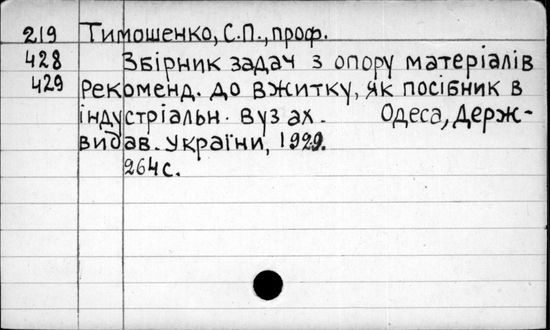 219 Тимошенко, С.П., проф.
428 Збірник задач з опору матеріалів
429 Рекоменд. до вжитку, як посібник в
індустріальн. вузах. Одеса, Держ-
видав. України, 1929.
264с.